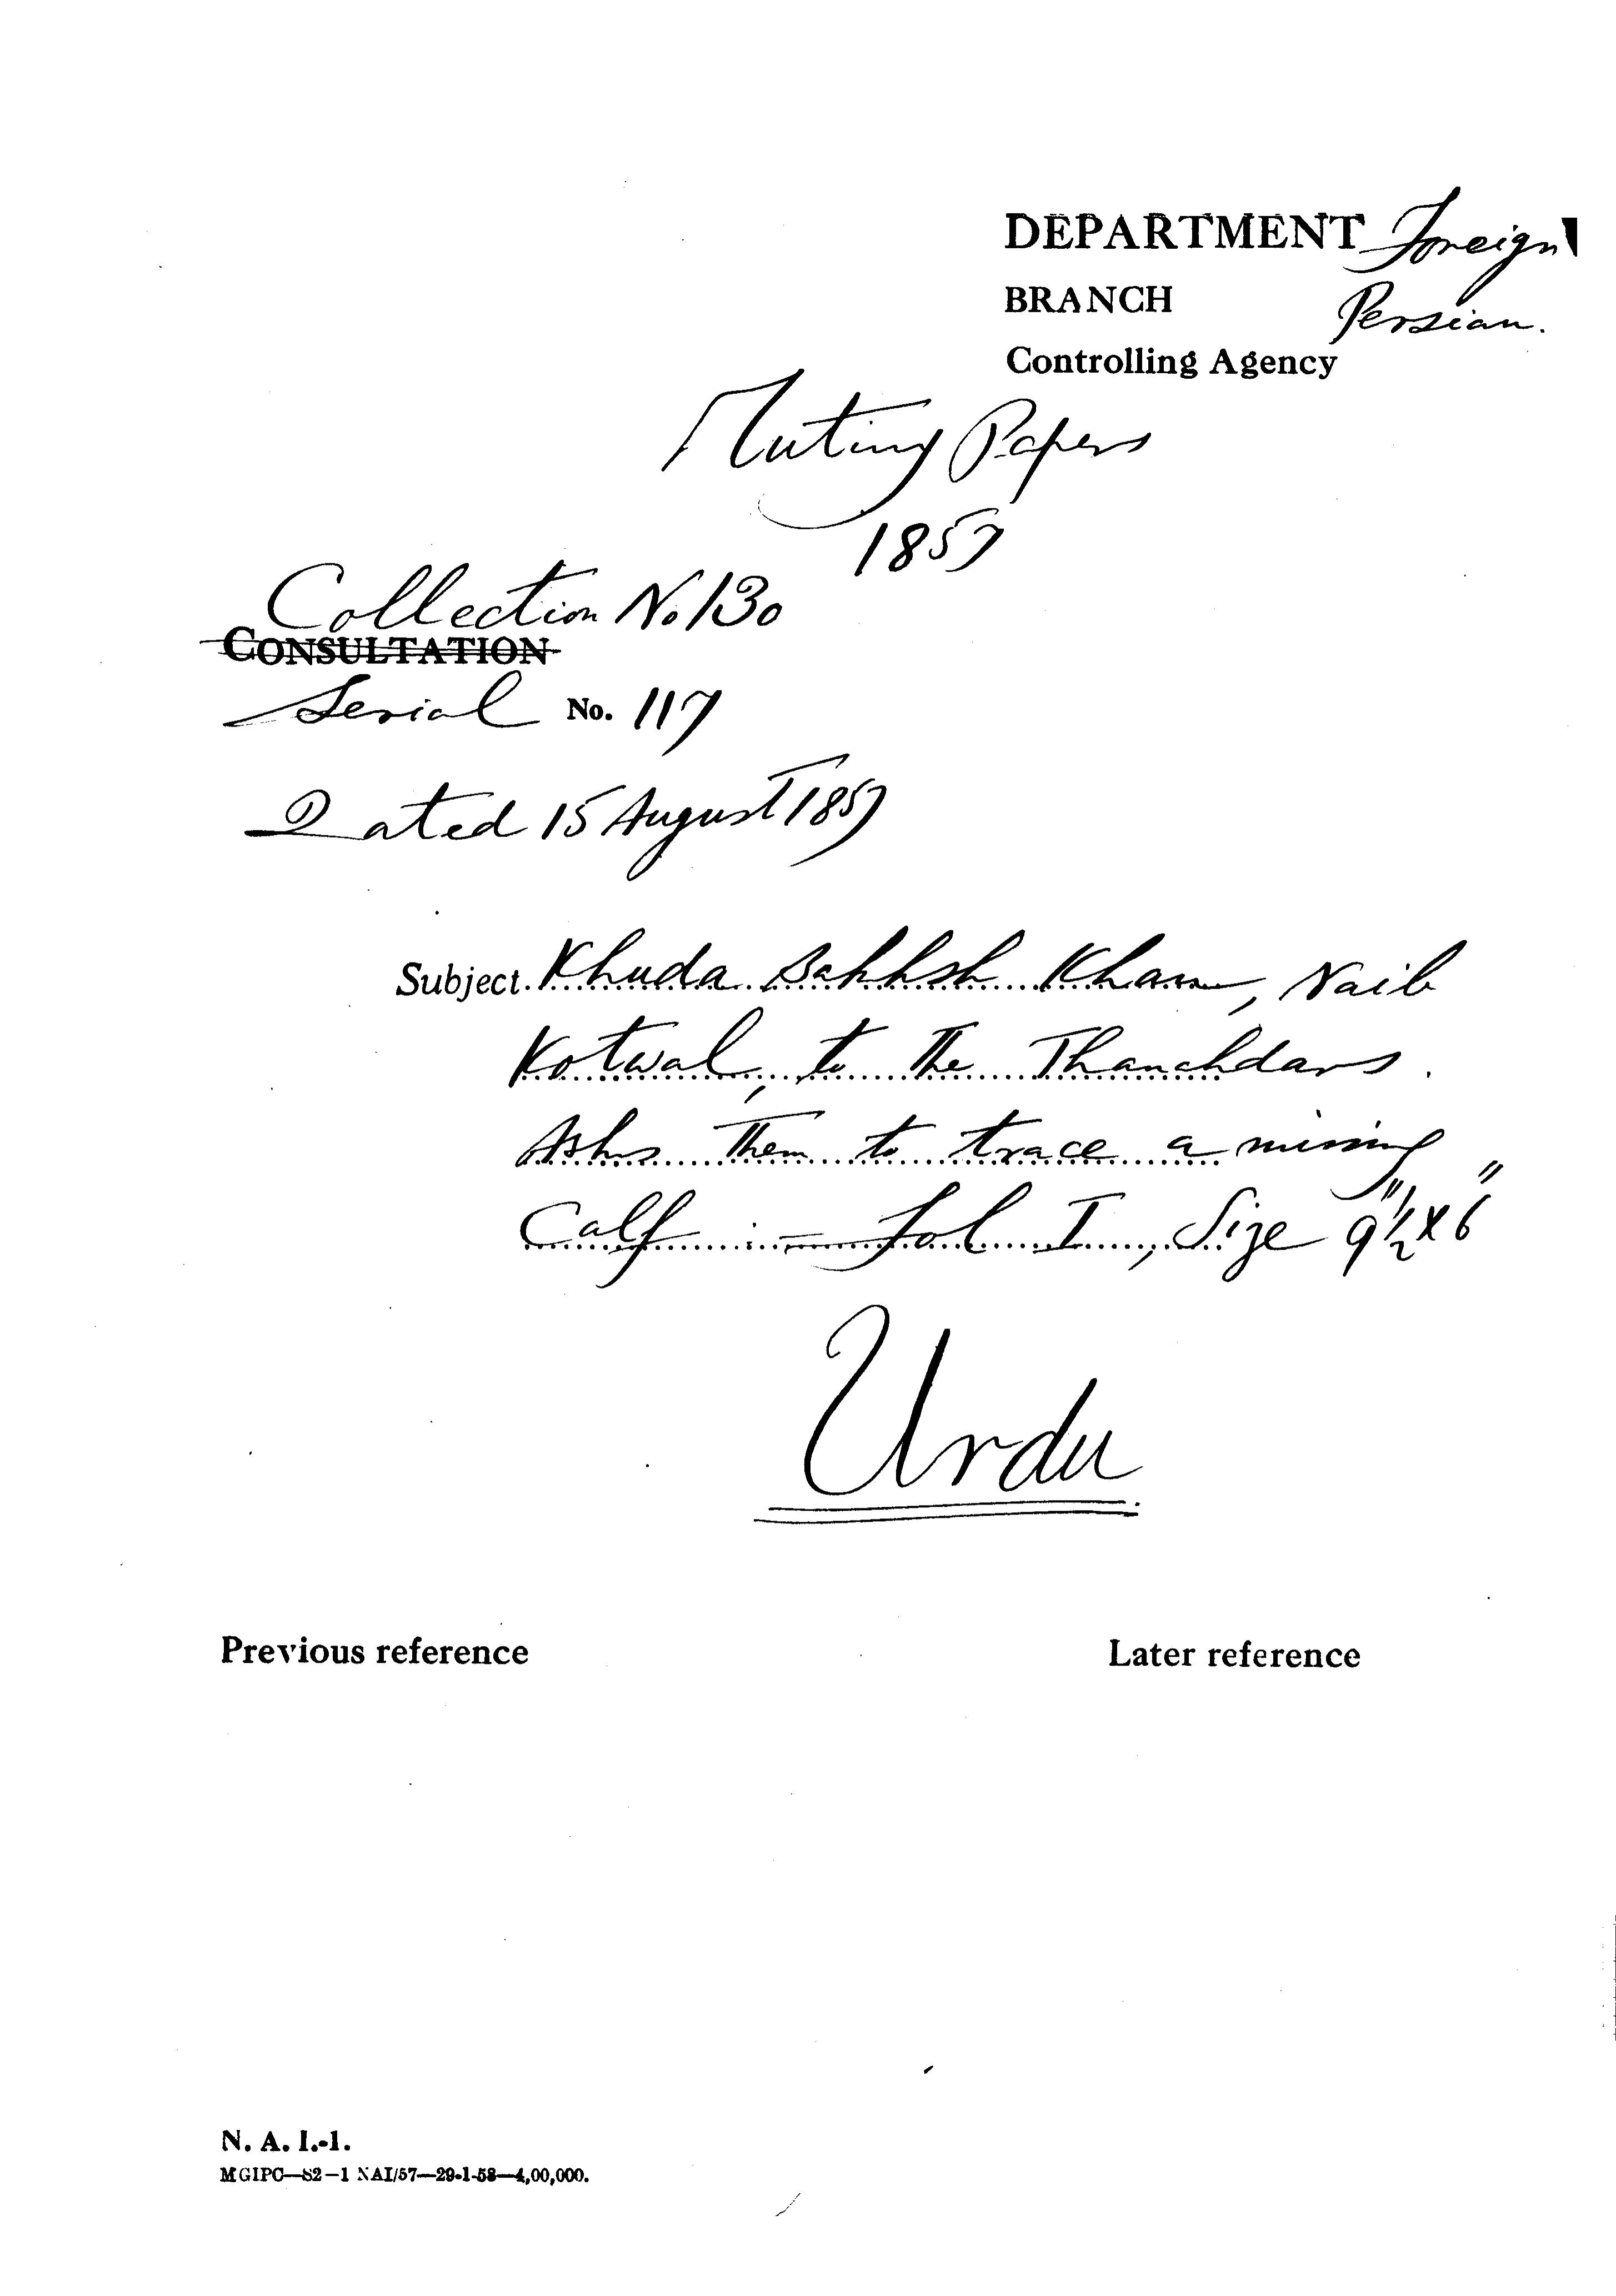 DEPARTMENT Foreign
BRANCH Persian.
Controlling Agency
Mutiny Papers
1857
Collection No 130
CONSULTATION
Serial No. 117
Dated 15 August 1857
Subject. Khuda Bakhsh Khan, Naib
Kotwal, to the Thanahdars.
Asks them to trace a missing
Calf :— Fol I, Size 9"½ x 6"
Urdu
Previous reference Later reference
N. A. I.-1.
MGIPC—S2—1 NAI/57—29-1-58—4,00,000.